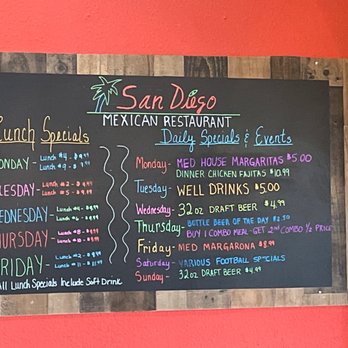 San Diego
MEXICAN RESTAURANT
Lunch Specials
ONDAY- Lunch #4 -
ESDAY-
EDNESDAY-
HURSDAY-
RIDAY
All Lunch Specials Include Soft Drink
Daily Specials & Events
Monday- MED HOUSE MARGARITAS $5.00
DINNER CHICKEN FAJITAS $10.99
Tuesday- WELL DRINKS $5.00
Wednesday- 32oz DRAFT BEER $4.99
Thursday- BOTTLE BEER OF THE DAY $2.50
BUY 1 COMBO MEAL-GET 2nd COMBO 1/2 PRICE
Friday- MED MARGARONA $8.99
Saturday- VARIOUS FOOTBALL SPECIALS
Sunday- 32oz DRAFT BEER $4.99